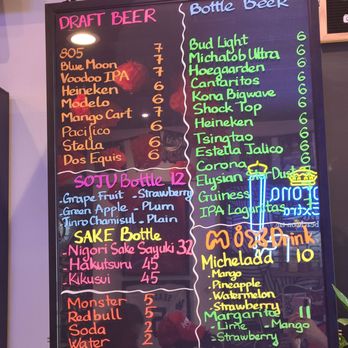 DRAFT BEER
805 7
Blue Moon 7
Voodoo IPA 7
Heineken 6
Modelo 6
Mango Cart 7
Pacifico 6
Stella 6
Dos Equis 6
SOJU Bottle 12
- Grape Fruit - Strawberry
- Green Apple - Plum
- Jinro Chamisul - Plain
SAKE Bottle
- Nigori Sake Sayuki 32
- Hakutsuru 45
- Kikusui 45
Monster 5
Red bull 5
Soda 2
Water 2
Bottle Beer
Bud Light 6
Michalob Ultra 6
Hoegaarden 6
Cantaritos 6
Kona Bigwave 6
Shock Top 6
Heineken 6
Tsingtao 6
Estella Jalico 6
Corona
Elysian Dust
Guiness
IPA Lagunitas
Drink
Michelada 10
- Mango
- Pineapple
- Watermelon
- Strawberry
Margarita 11
- Lime - Mango
- Strawberry